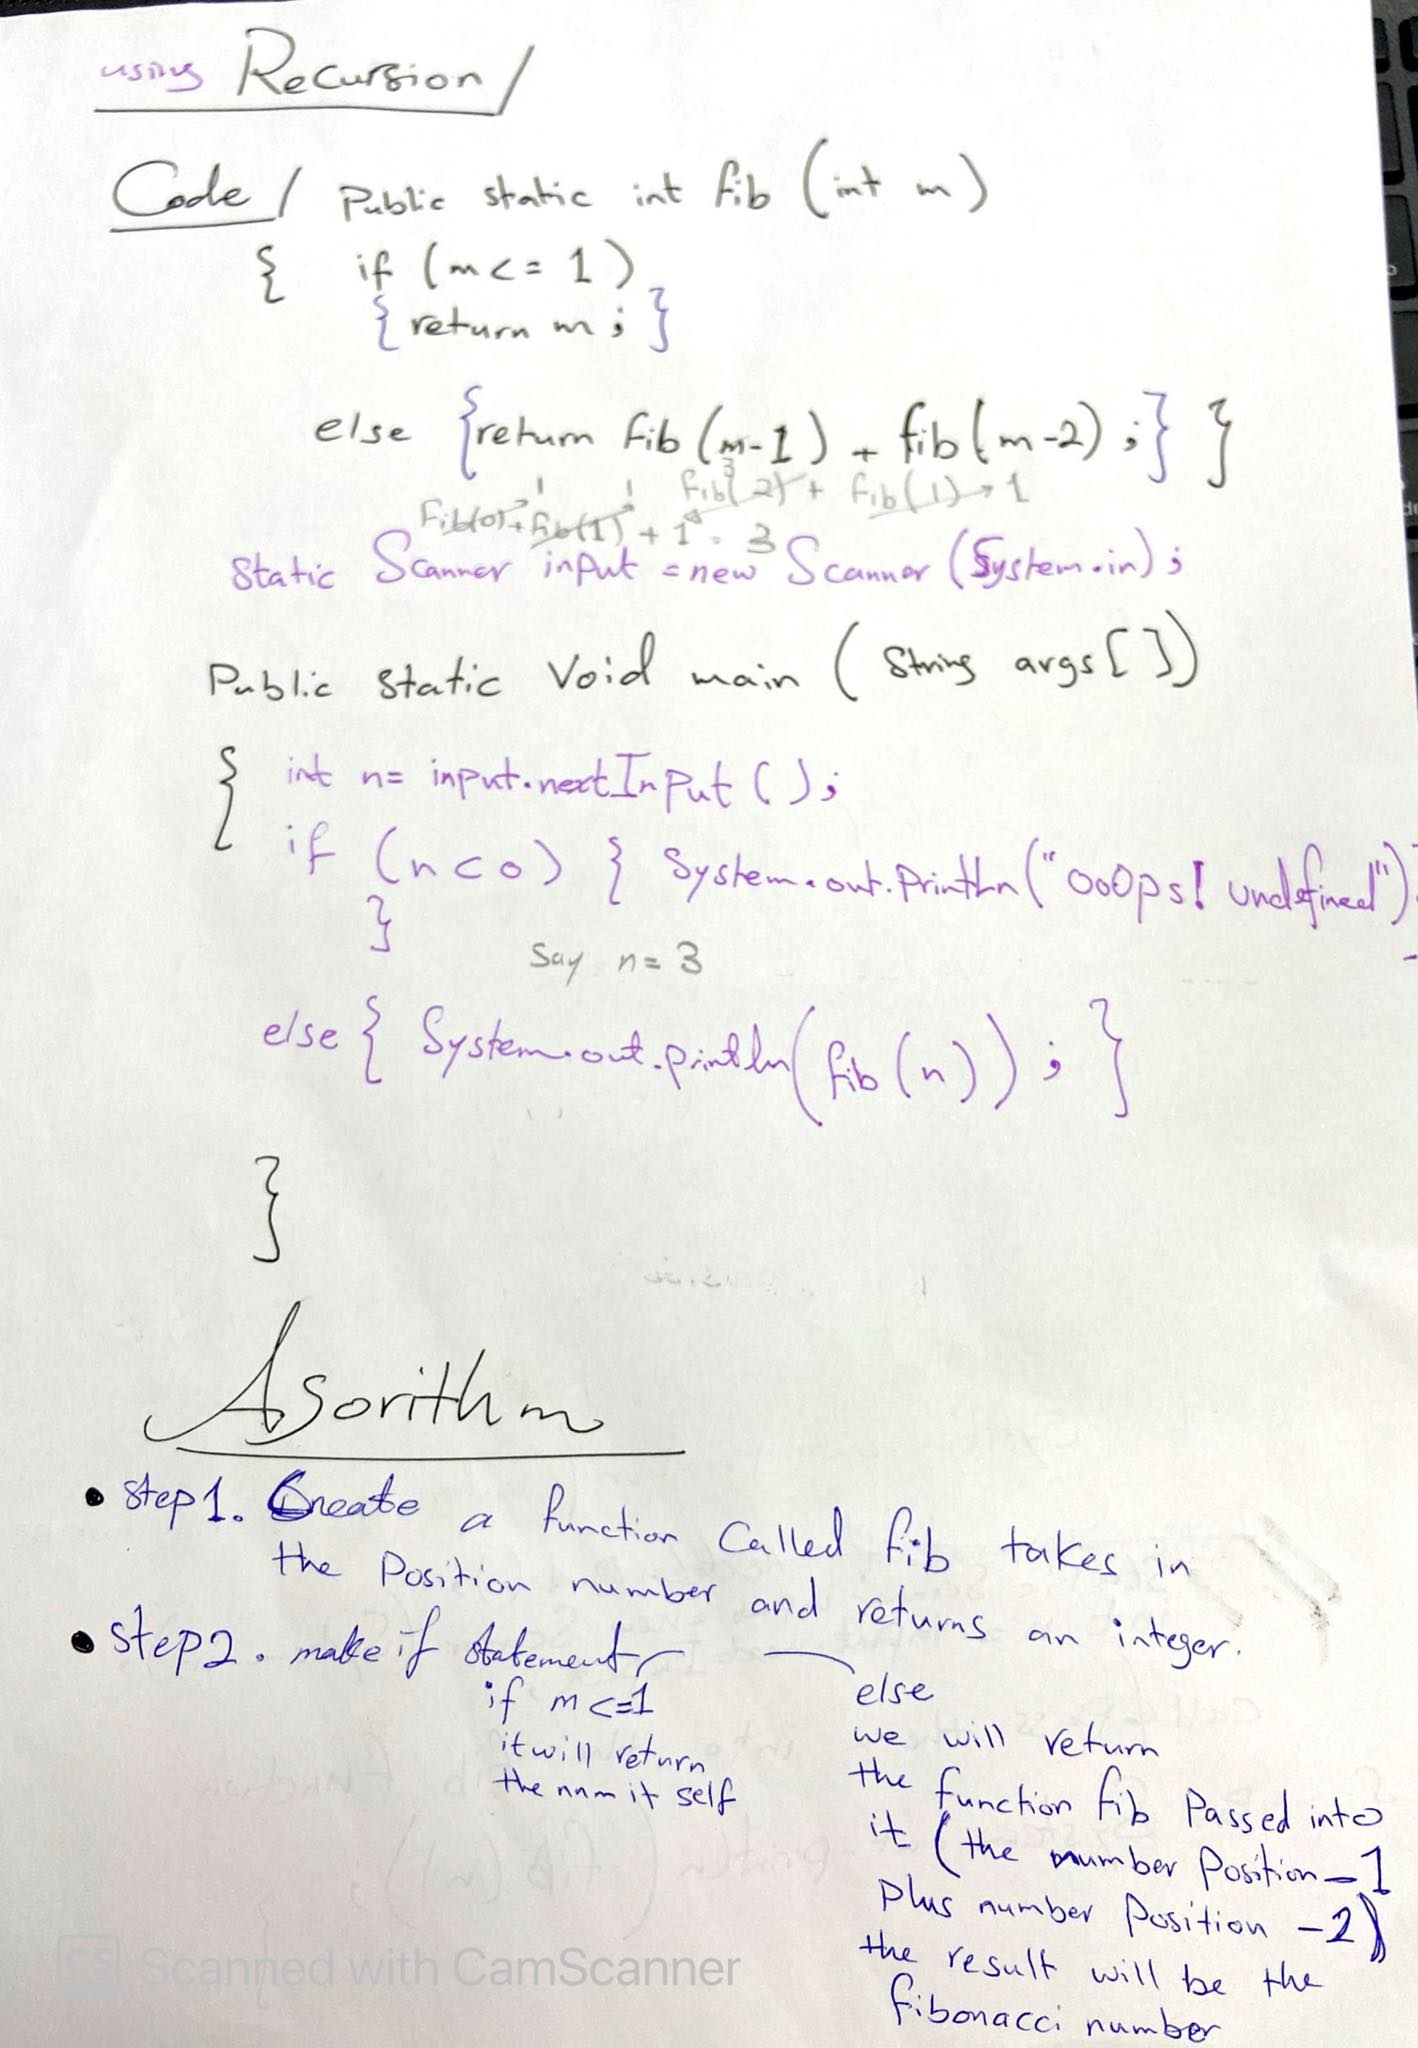 using Recursion/
Code / Public static int fib (int m)
{ if (m <= 1)
{ return m ; }
else { return fib (m-1) + fib (m-2) ; } }
3
fib(2) + fib(1) → 1
1 1
Fib(0) + fib(1) + 1 = 3
static Scanner input = new Scanner (System.in) ;
Public static Void main ( String args [ ])
{ int n= input.nextInPut ( ) ;
if (n < 0) { System.out.Println ("oo0ps! undefined")
}
Say n = 3
else { System.out.println ( fib (n) ) ; }
}
Algorithm
• step 1. Create a function Called fib takes in
the Position number and returns an integer.
• step 2. make if statement
if m <=1
it will return
the num it self
else
we will return
the function fib Passed into
it ( the number Position - 1
plus number Position - 2)
the result will be the
fibonacci number
CS Scanned with CamScanner